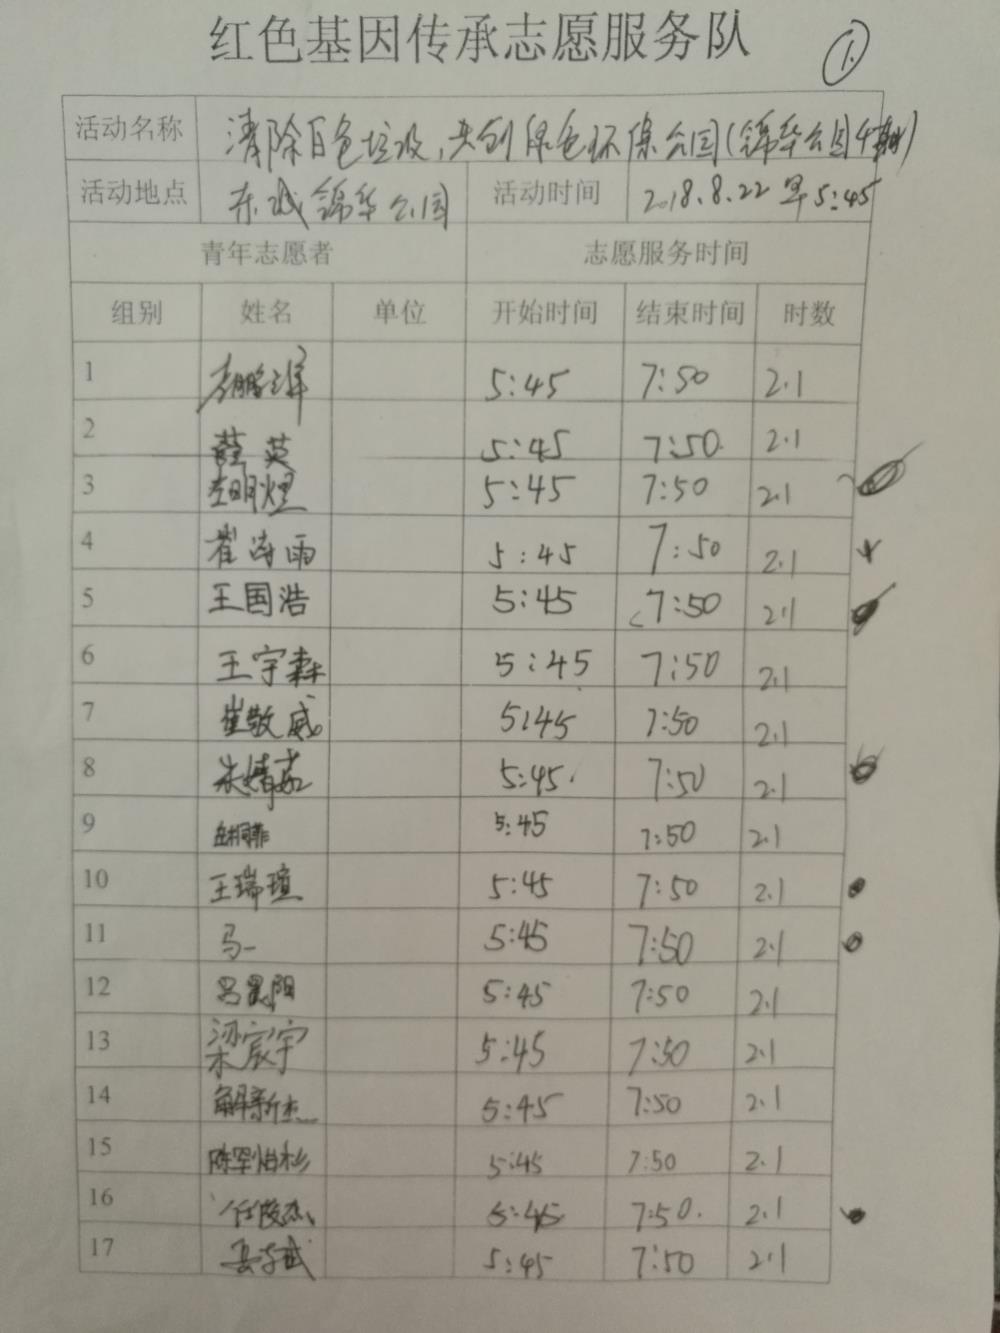 红色基因传承志愿服务队
①
活动名称 清除白色垃圾,共创绿色环保公园(锦华公园4期)
活动地点 东城锦华公园 活动时间 2018.8.22 早5:45
青年志愿者 志愿服务时间
组别 姓名 单位 开始时间 结束时间 时数
1 5:45 7:50 2.1
2 薛英 5:45 7:50 2.1
3 李明煜 5:45 7:50 2.1
4 崔海雨 5:45 7:50 2.1
5 王国浩 5:45 7:50 2.1
6 王宇森 5:45 7:50 2.1
7 崔敬威 5:45 7:50 2.1
8 朱婧茹 5:45 7:50 2.1
9 5:45 7:50 2.1
10 王瑞瑄 5:45 7:50 2.1
11 马一 5:45 7:50 2.1
12 吕晨阳 5:45 7:50 2.1
13 梁宸宇 5:45 7:50 2.1
14 解新杰 5:45 7:50 2.1
15 陈罕怡杉 5:45 7:50 2.1
16 任俊杰 5:45 7:50 2.1
17 5:45 7:50 2.1